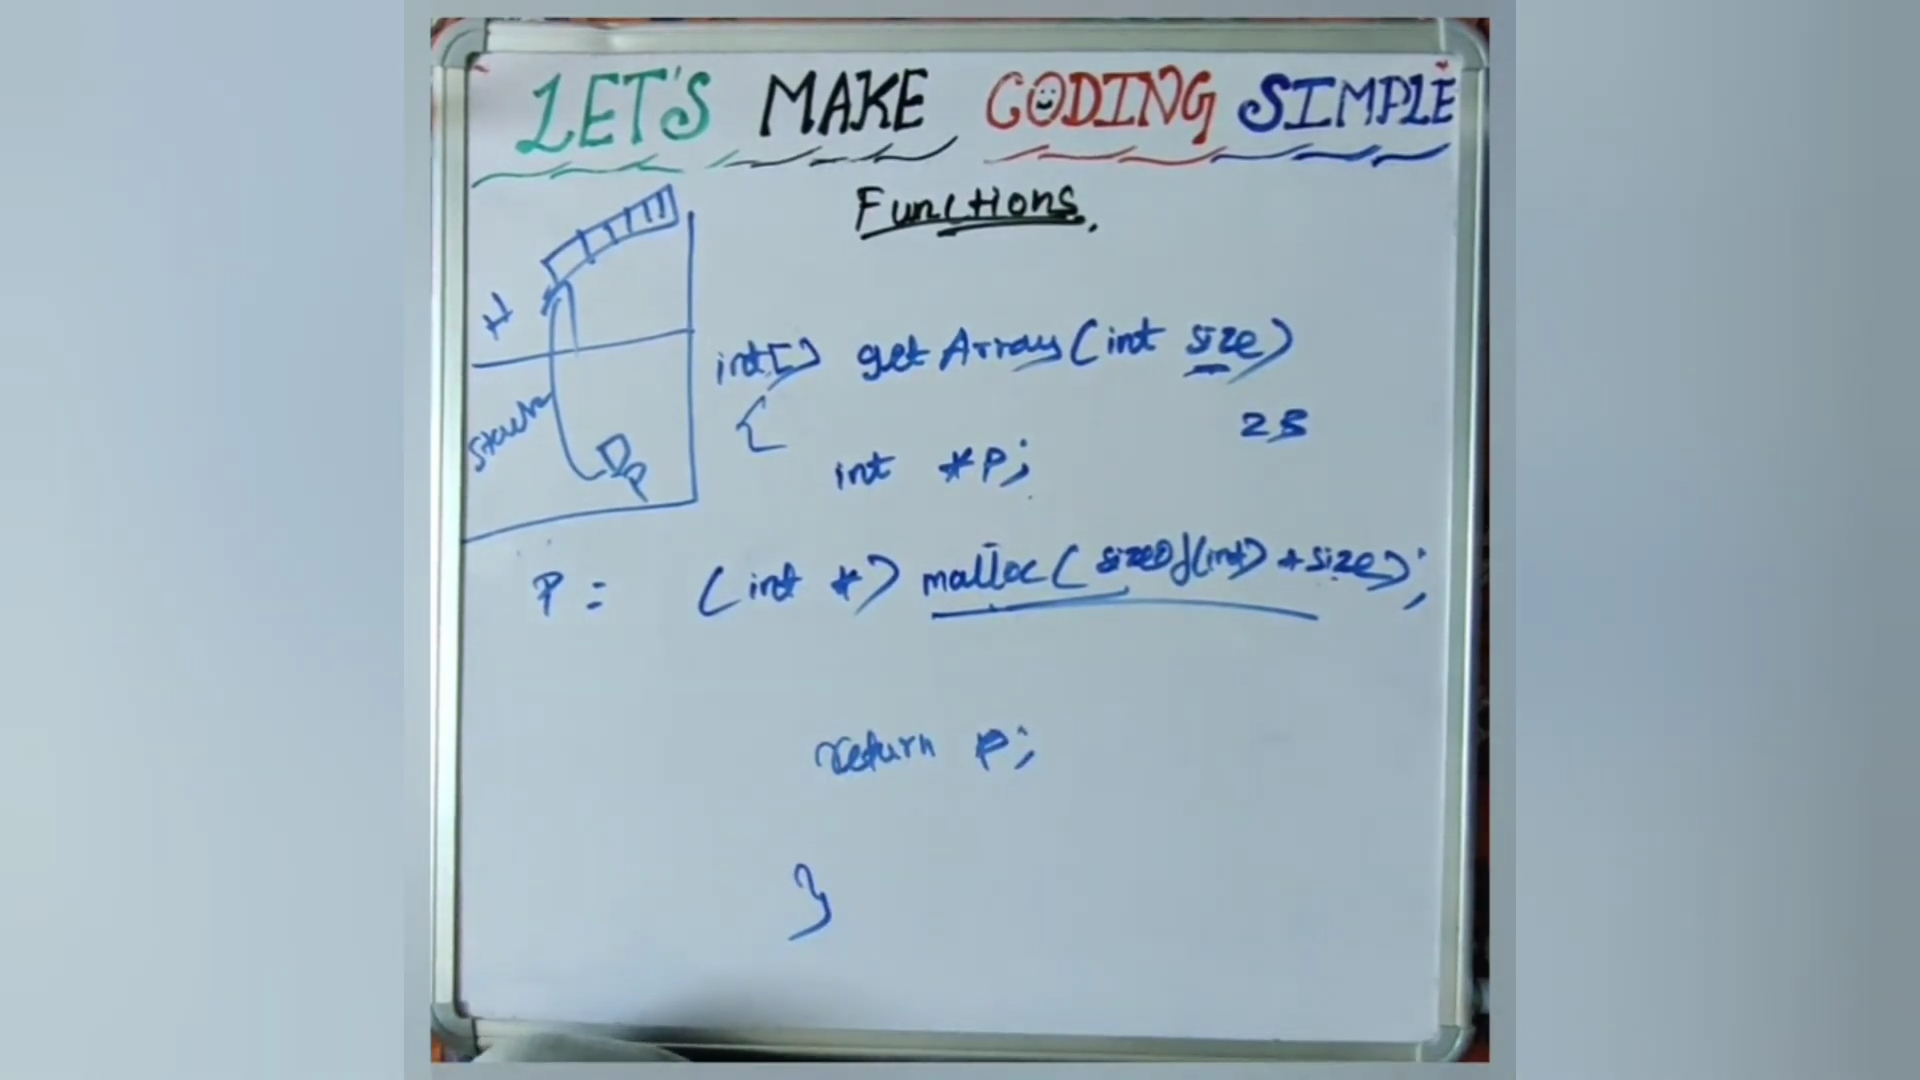 LET'S MAKE CODING SIMPLE
Functions.
H
Stack
P
int[] getArray(int size)
25
{
int *P;
P = (int *) malloc( sizeof(int) * size);
return P;
}